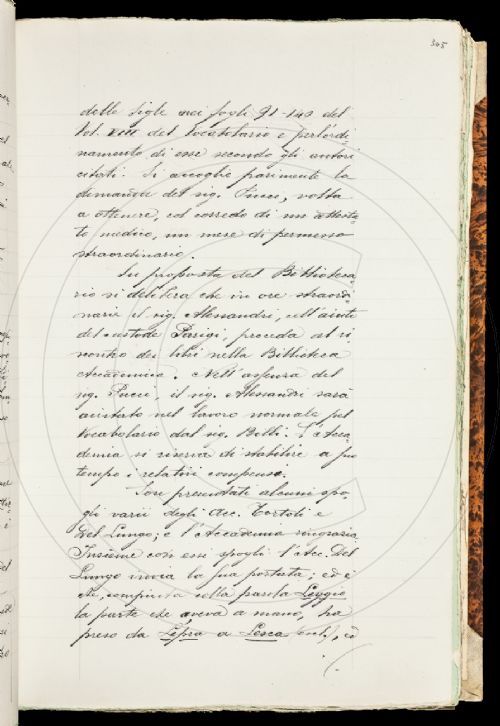 345
delle sigle nei fogli 91-140 del
vol. XIII del Vocabolario e per l'ordi=
namento di esse secondo gli autori
citati. Si accoglie parimente la
domanda del sig. Pucci, volta
a ottenere, col corredo di un attesta=
to medico, un mese di permesso
straordinario.
Su proposta del Biblioteca=
rio si delibera che in ore straordi=
narie il sig. Alessandri, coll'aiuto
del custode Parigi, proceda al ri=
scontro dei libri nella Biblioteca
Accademica. Nell'assenza del
sig. Pucci, il sig. Alessandri sarà
aiutato nel lavoro normale pel
Vocabolario dal sig. Belli. L'Acca=
demia si riserva di stabilire a suo
tempo i relativi compensi.
Son presentati alcuni spo=
gli varii degli Acc. Tortoli e
Del Lungo; e l'Accademia ringrazia.
Insieme con essi spogli l'Acc. Del
Lungo invia la sua portata; ed è
che, compiuta colla parola Leggio
la parte che aveva a mano, ha
preso da Lepra a Lesca, ed